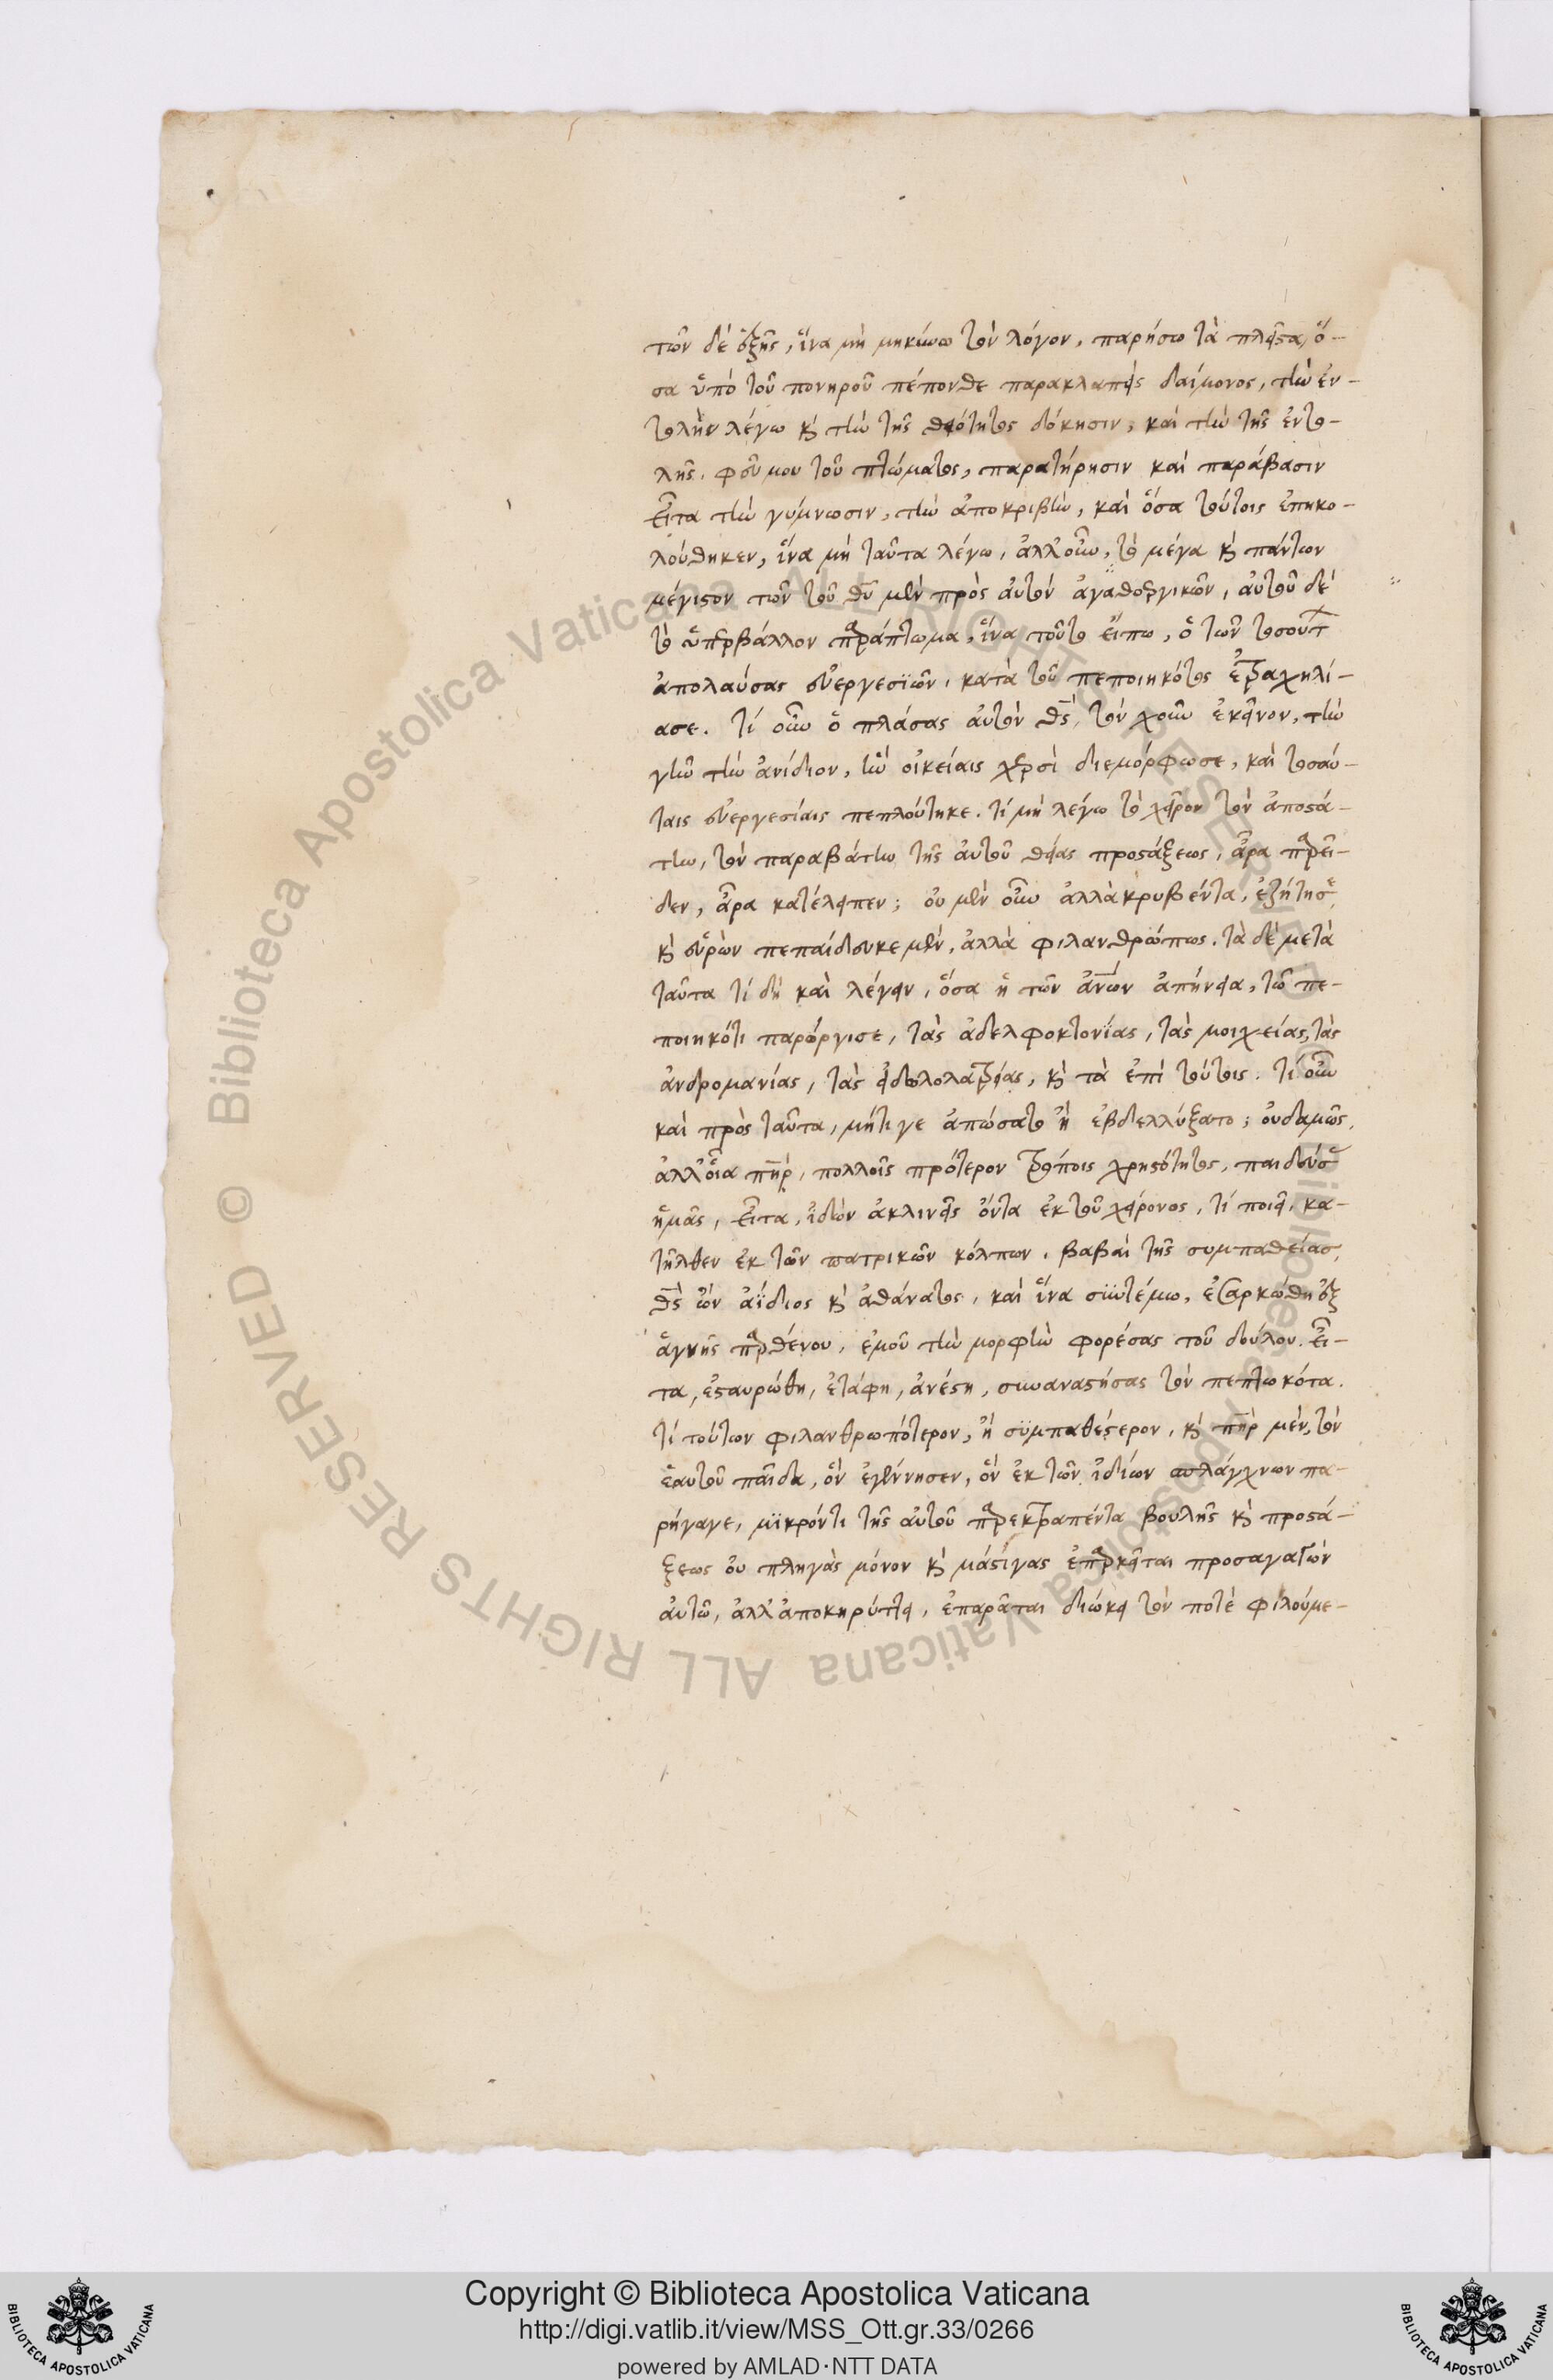 τῶν δὲ ἑξῆς, ἵνα μὴ μηκύνω τὸν λόγον, παρήσω τὰ πλεῖστα, ὅ-
σα ὑπὸ τοῦ πονηροῦ πέπονθε παρακλαπεὶς δαίμονος, τὴν ἐν-
τολὴν λέγω καὶ τὴν τῆς θεότητος δόκησιν, καὶ τὴν τῆς ἐντο-
λῆς. φεῦ μου τοῦ πτώματος, παρατήρησιν καὶ παράβασιν
εἶτα τὴν γύμνωσιν, τὴν ἀποκριβὴν, καὶ ὅσα τούτοις ἐπηκο-
λούθηκεν, ἵνα μὴ ταῦτα λέγω, ἀλλ' οὖν, τὸ μέγα καὶ πάντων
μέγιστον τῶν τοῦ θυ μὲν πρὸς αὐτὸν ἀγαθοεργικῶν, αὐτοῦ δὲ
τὸ ὑπερβάλλον παράπτωμα, ἵνα τοῦτο εἴπω, ὁ τῶν τοσούτ
ἀπολαύσας εὐεργεσιῶν, κατὰ τοῦ πεποιηκότος ἐτραχηλί-
ασε. τί οὖν ὁ πλάσας αὐτὸν θς, τὸν χοῦν ἐκεῖνον, τὴν
γῆν τὴν ἀνίδιον, ἣν οἰκείαις χερσὶ διεμόρφωσε, καὶ τοσαύ-
ταις εὐεργεσίαις πεπλούτηκε. τί μὴ λέγω τὸ χεῖρον τὸν ἀποστά-
την, τὸν παραβάτην τῆς αὐτοῦ θείας προστάξεως, ἆρα παρεῖ-
δεν, ἆρα κατέλειπεν; οὐ μὲν οὖν ἀλλὰ κρυβέντα, ἐζήτησε,
καὶ εὑρὼν πεπαίδευκε μὲν, ἀλλὰ φιλανθρώπως. τὰ δὲ μετὰ
ταῦτα τί δὴ καὶ λέγειν, ὅσα ἡ τῶν ἀνων ἀπήνεια, τῶ πε-
ποιηκότι παρώργισε, τὰς ἀδελφοκτονίας, τὰς μοιχείας, τὰς
ἀνδρομανίας, τὰς εἰδωλολατρείας, καὶ τὰ ἐπὶ τούτοις. τί οὖν
καὶ πρὸς ταῦτα, μήτι γε ἀπώσατο ἢ ἐβδελλύξατο; οὐδαμῶς,
ἀλλ' οἷα πηρ, πολλοῖς πρότερον τρόποις χρηστότητος, παιδεύσ
ἡμᾶς, εἶτα, ἰδὼν ἀκλινεῖς ὄντα ἐκ τοῦ χείρονος, τί ποιεῖ, κα-
τῆλθεν ἐκ τῶν πατρικῶν κόλπων, βαβαὶ τῆς συμπαθείας,
θς ὢν ἀΐδιος καὶ ἀθάνατος, καὶ ἵνα συντέμω, ἐσαρκώθη ἐξ
ἁγνῆς παρθένου, ἐμοῦ τὴν μορφὴν φορέσας τοῦ δούλου. εἶ-
τα, ἐσταυρώθη, ἐτάφη, ἀνέστη, συναναστήσας τὸν πεπτωκότα.
τί τούτων φιλανθρωπότερον, ἢ συμπαθέστερον, καὶ πηρ μὲν, τὸν
ἑαυτοῦ παῖδα, ὃν ἐγέννησεν, ὃν ἐκ τῶν ἰδίων σπλάγχνων πα-
ρήγαγε, μικρόντι τῆς αὐτοῦ παρεκτραπέντα βουλῆς καὶ προστά-
ξεως οὐ πληγὰς μόνον καὶ μάστιγας ἐπαρκεῖται προσαγαγὼν
αὐτῶ, ἀλλ' ἀποκηρύττει, ἐπαρᾶται διώκει τὸν ποτὲ φιλούμε-
Biblioteca Apostolica Vaticana ALL RIGHTS RESERVED ©
Biblioteca Apostolica Vaticana ALL RIGHTS RESERVED ©
Copyright © Biblioteca Apostolica Vaticana
http://digi.vatlib.it/view/MSS_Ott.gr.33/0266
powered by AMLAD·NTT DATA
BIBLIOTECA APOSTOLICA VATICANA
BIBLIOTECA APOSTOLICA VATICANA